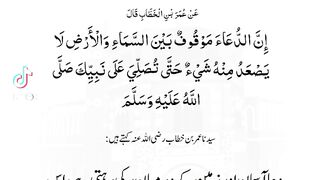 عَنْ عُمَرَ بْنِ الْخَطَّابِ قَالَ
إِنَّ الدُّعَاءَ مَوْقُوفٌ بَيْنَ السَّمَاءِ وَالْأَرْضِ لَا
يَصْعَدُ مِنْهُ شَيْءٌ حَتَّى تُصَلِّيَ عَلَى نَبِيِّكَ صَلَّى
اللهُ عَلَيْهِ وَسَلَّمَ
سیدنا عمر بن خطاب رضی اللہ عنہ کہتے ہیں: